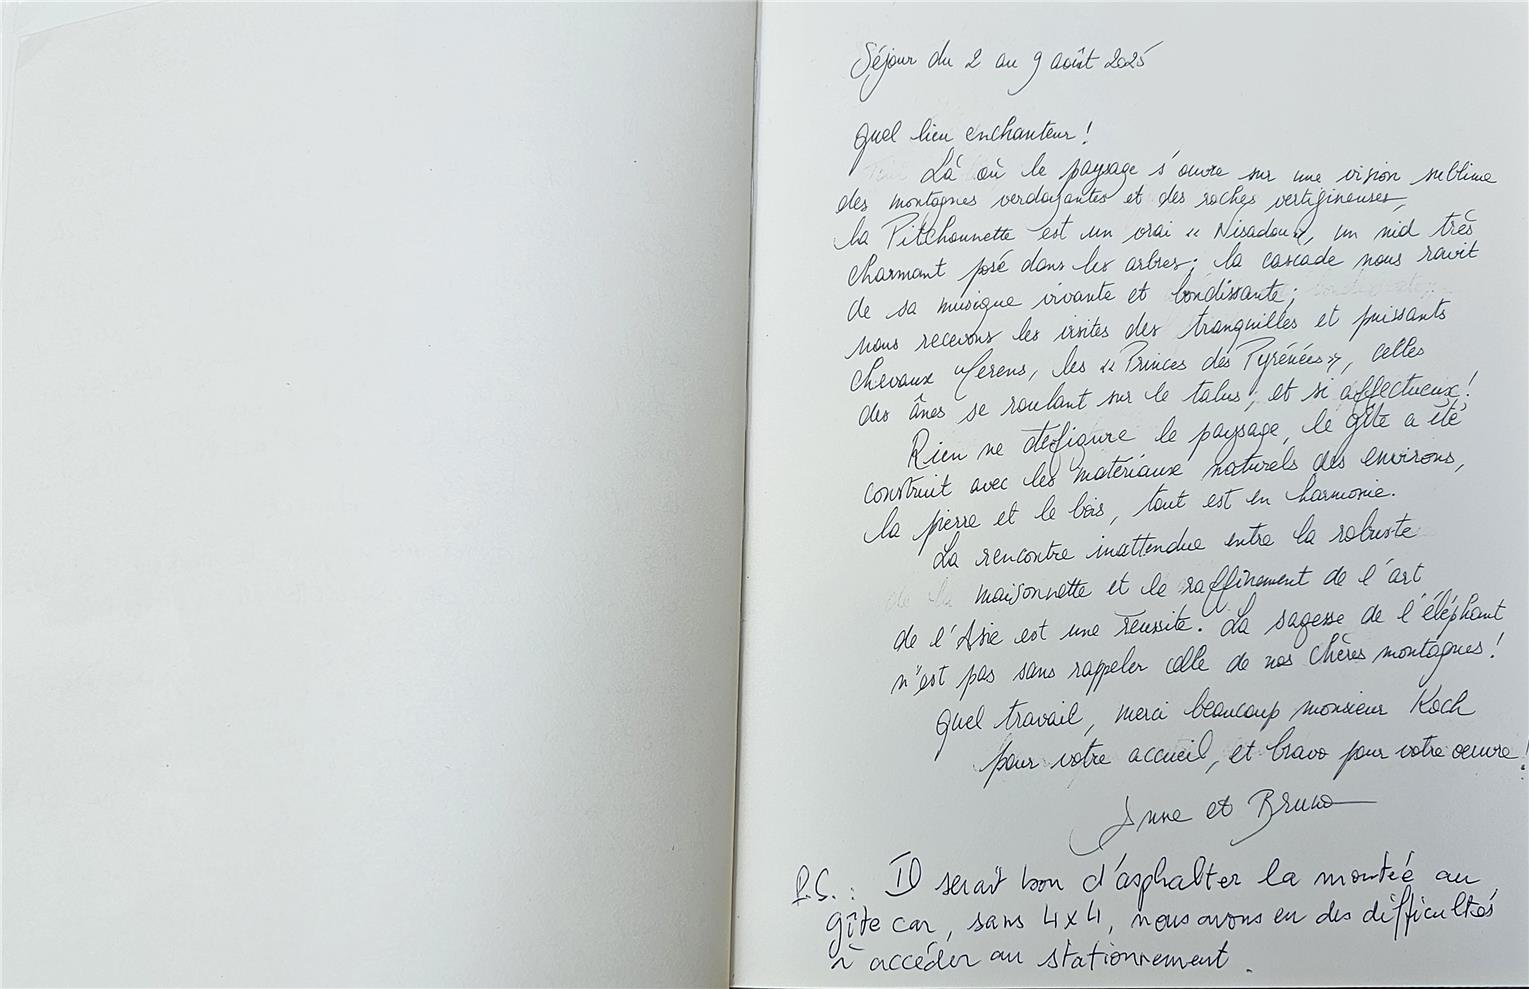 Séjour du 2 au 9 août 2025
Quel lieu enchanteur !
Là où le paysage s'ouvre sur une vision sublime
des montagnes verdoyantes et des roches vertigineuses,
la Pitchounette est un vrai « Nisadou », un nid très
charmant posé dans les arbres ; la cascade nous ravit
de sa musique vivante et bondissante ;
nous recevons les visites des tranquilles et puissants
chevaux Merens, les « Princes des Pyrénées », celles
des ânes se roulant sur le talus, et si affectueux !
Rien ne défigure le paysage, le gîte a été
construit avec les matériaux naturels des environs,
la pierre et le bois, tout est en harmonie.
La rencontre inattendue entre la robuste
maisonnette et le raffinement de l'art
de l'Asie est une réussite. La sagesse de l'éléphant
n'est pas sans rappeler celle de nos chères montagnes !
Quel travail, merci beaucoup monsieur Koch
pour votre accueil, et bravo pour votre oeuvre !
Anne et Bruno
P.S. : Il serait bon d'asphalter la montée au
gîte car, sans 4x4, nous avons eu des difficultés
à accéder au stationnement.